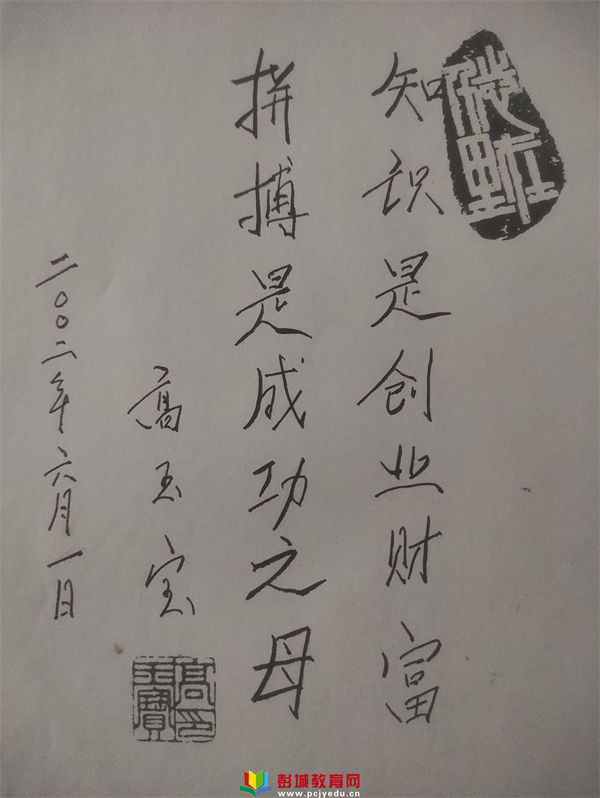 知识是创业财富
拼搏是成功之母
高玉宝
二〇〇二年六月一日
彭城教育网
www.pcjyedu.cn